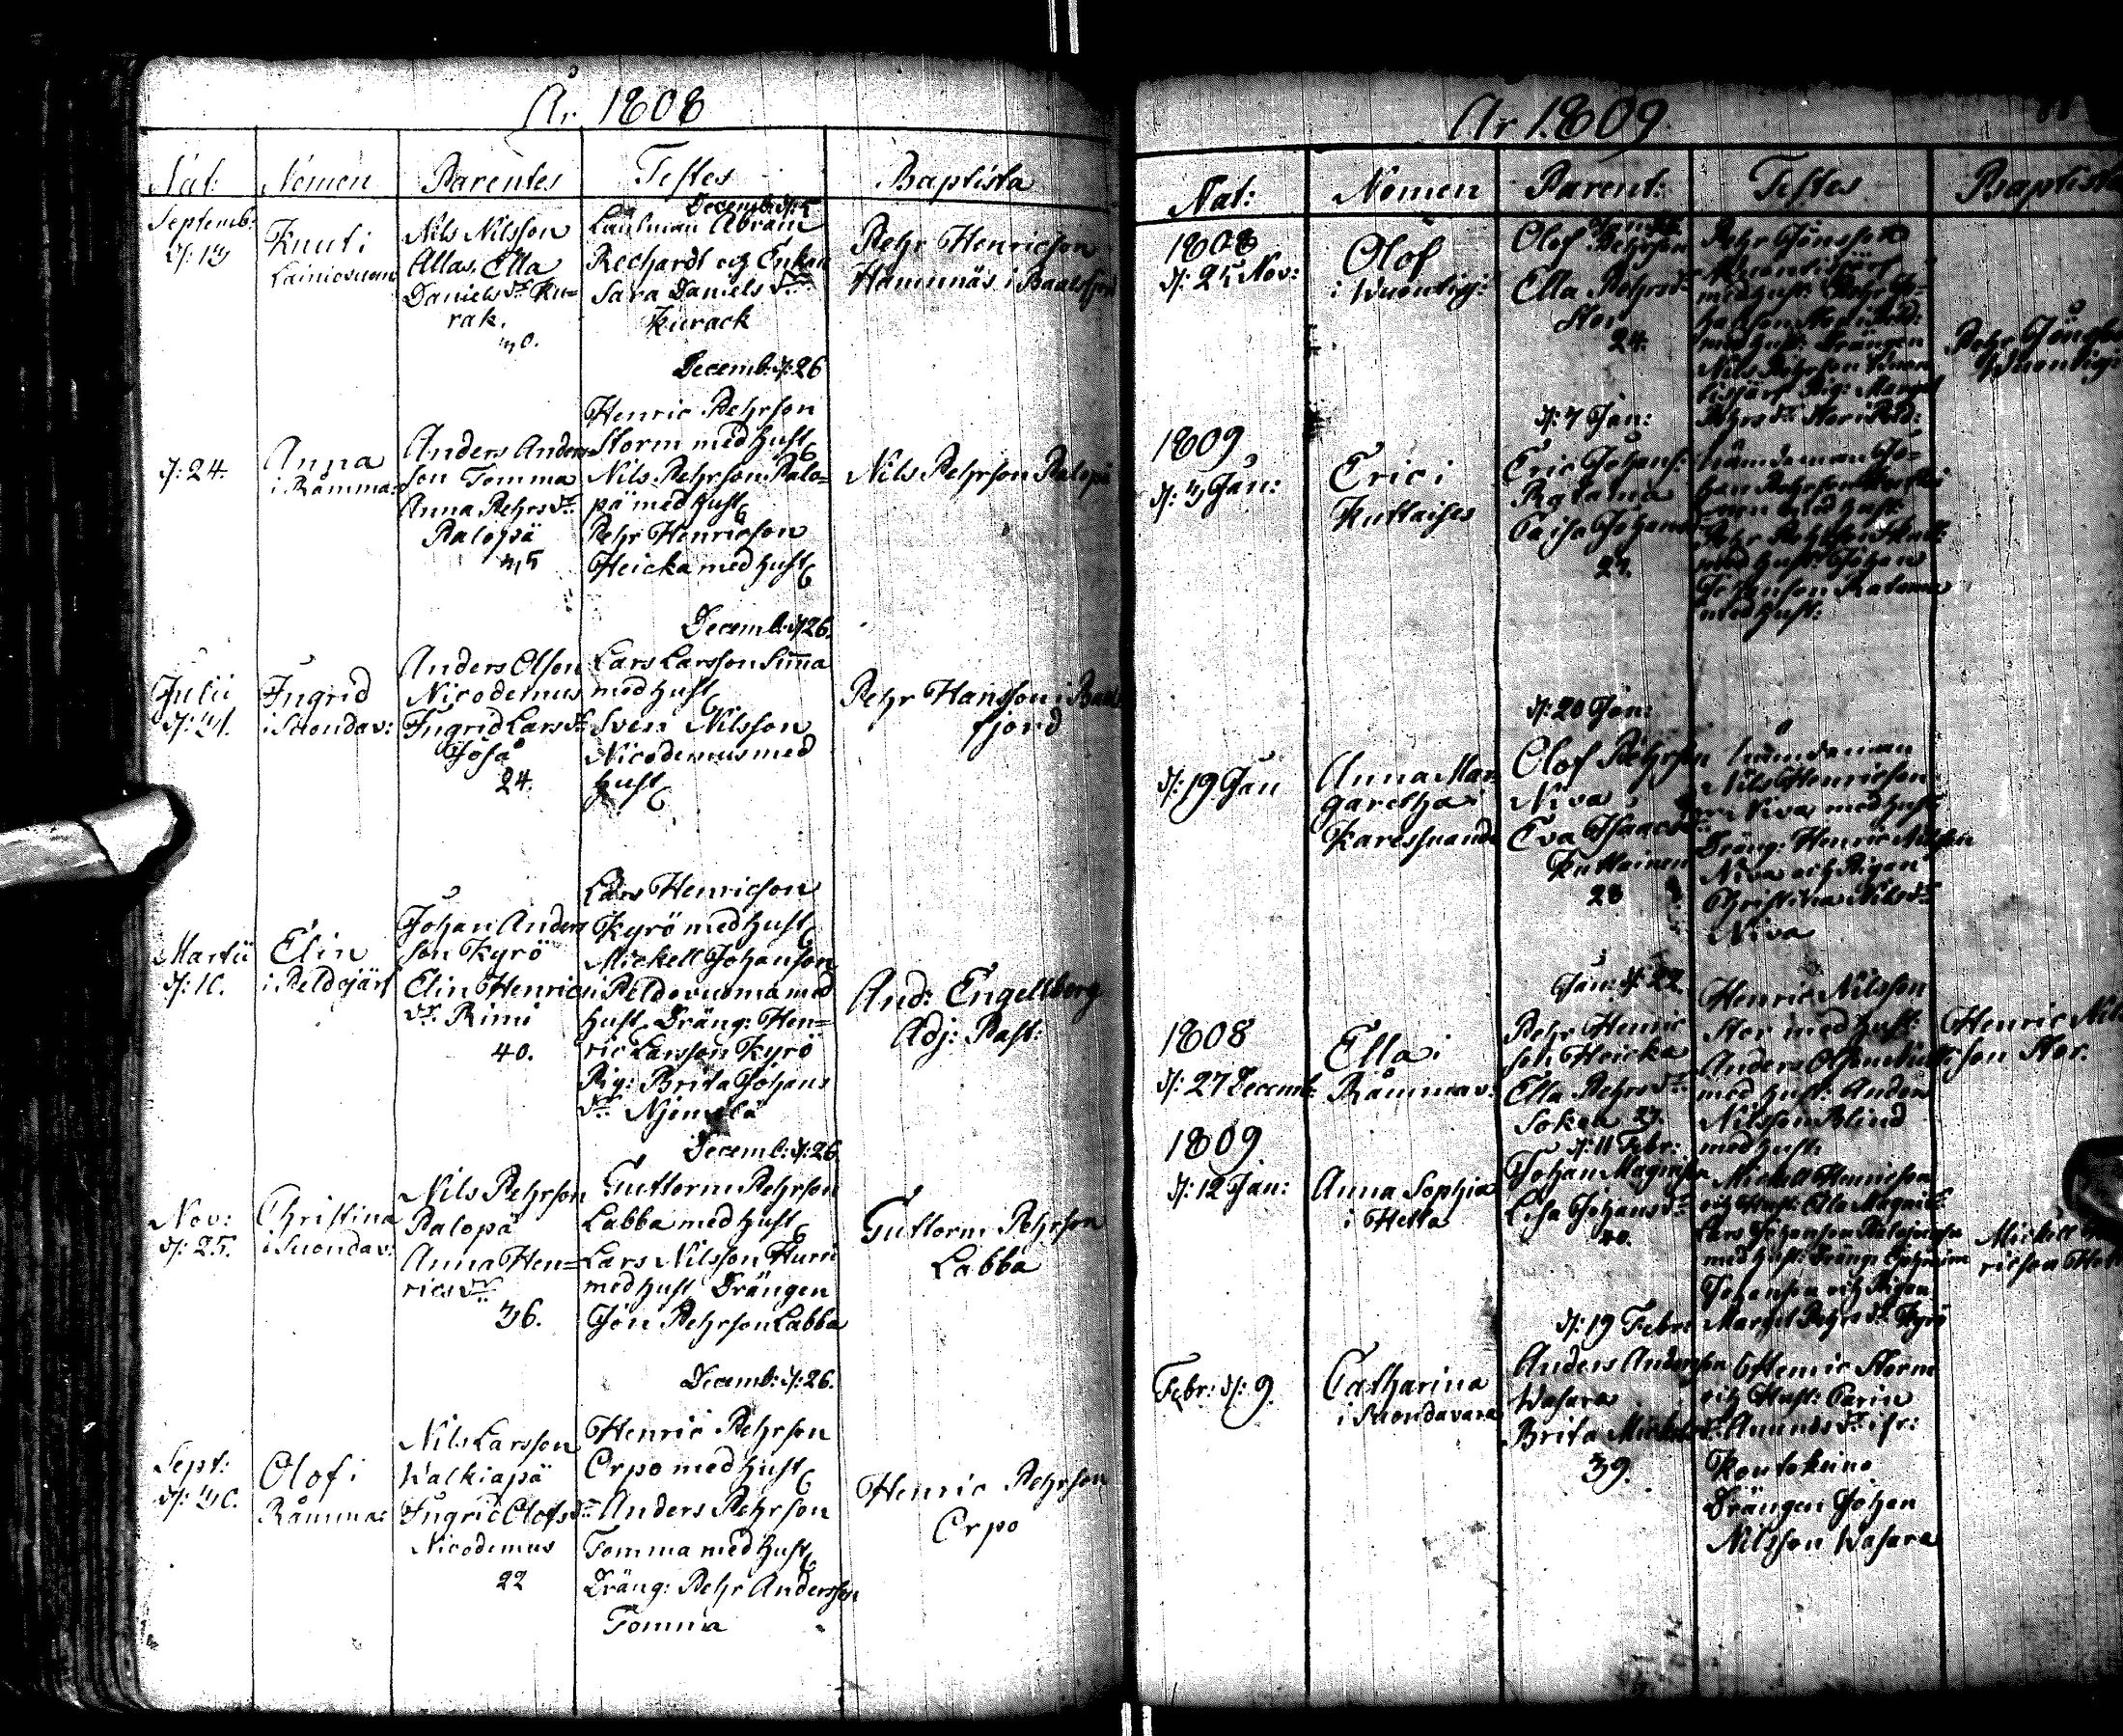 År 1808
Nat: Nomen Parentes Testes Baptista
Septemb:
d: 13
Knut i
Lainiovuom
Nils Nilsson
Allas, Ella
Daniels dr Ku=
rak.
30.
Decemb: d: 5
Länsman Abram
Rechardt och Enkan
Sara Daniels dr
Kurack
Pehr Henricson
Hamnnäs i Baalsfjord
d: 24.
Anna
i Råmma:
Anders Anders
son Tomma
Anna Pehrs dr
Palopä
35
Decemb: d: 26
Henric Pehrson
Storm med hust
Nils Pehrson Palo=
pä med hust
Pehr Henricson
Heicka med hust
Nils Pehrson Palopä
Julii
d: 31.
Ingrid
i Suondav:
Anders Olson
Nicodemus
Ingrid Lars dr
Josä
24.
Decemb: d 26.
Lars Larsson Simma
med hust
Sven Nilsson
Nicodemus med
hust
Pehr Hansson i Baals
fjord
Martii
d: 10.
Elin
i Peldojärf
Johan Anders
son Kyrö
Elin Henrics
dr Rimi
40.
Lars Henricson
Kyrö med hust
Mickell Johanson
i Peldovuoma med
hust Dräng: Hen=
ric Larsson Kyrö
Pig: Brita Johans
dr Njemelä
And: Engellberg
Adj: Past:
Nov:
d: 25.
Christina
i Suondav:
Nils Pehrson
Palopä
Anna Hen=
rics dr
36.
Decemb: d: 26.
Guttorm Pehrson
Labba med hust
Lars Nilsson Hurri
med hust Drängen
Jön Pehrson Labba
Guttorm Pehrson
Labba
Sept:
d: 30.
Olof i
Råmma:
Nils Larsson
Walkiapä
Ingrid Olofs dr
Nicodemus
22
Decemb: d: 26.
Henric Pehrson
Orpo med hust
Anders Pehrson
Tomma med hust
Dräng: Pehr Andersson
Tomma
Henric Pehrson
Orpo
År 1809
Nat: Nomen Parent: Testes Baptista
1808
d: 25 Nov:
Olof
i Wuontisj:
Olof Pehrson
Ella Pehrs dr
Stor
24.
Pehr Jönsson
med hust: Pehr Jo=
med hust: Drängen
Nils Pehrson Wuon
tisjärf Pig: Margret
Pehrs dr Stor i Peld:
Pehr Jöns
Wuontisj:
1809
d: 3 Jan:
Eric i
Kuttaises
d: 7 Jan:
Eric Johans:
Ratama
Caisa Johans
27.
Nämdeman Jo=
han Pehrson
med hust:
Pehr
med hust: Johan
Johanson Ratama
med hust:
d: 19 Jan
Anna Mar
garetha i
Karessuando
d: 20 Jan:
Olof Pehrson
Niva
Eva Isaacs dr
Kuttainen
28
Nämdeman
Nils Henricson
Niva med hust
Dräng: Henric Nilsson
Niva och Pigan
Christina Nils dr
Niva
1808
d: 27 Decemb:
Ella i
Råmmav:
Jan: d: 22.
Pehr Henric
son Heicka
Ella Pehrs dr
Sokea 37.
Henric Nilsson
Stor med hust:
Anders Olsson
med hust: Anders
Nilsson Blind
med hust:
Henric Nils
son Stor.
1809.
d: 12 Jan:
Anna Sophia
i Hetta
d: 11 Febr:
Johan Magnison
Lisa Johans dr
40.
Mickell Henricson
och Hust: Ella Magni dr
Lars Johanson Palojoensu
med hust: Dräng: Ephraim
Johanson och Pigan
Margret Pehrs dr Kyrö
Mickell Hen
ricson Hetta
Febr: d: 9.
Catharina
i Suondavara
d: 19 Febr:
Anders Anderson
Wasara
Brita Mickels dr
39.
Henric Storm
och Hust: Carin
Amunds dr ifr:
Koutokeino
Drängen Johan
Nilsson Wasara